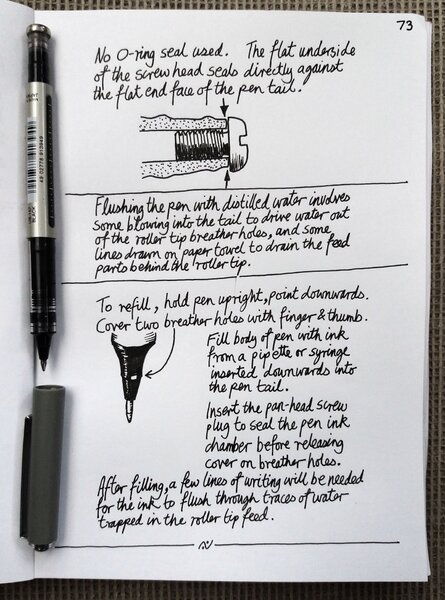 73
No O-ring seal used. The flat underside
of the screw head seals directly against
the flat end face of the pen tail.
Flushing the pen with distilled water involves
some blowing into the tail to drive water out
of the roller tip breather holes, and some
lines drawn on paper towel to drain the feed
parts behind the roller tip.
To refill, hold pen upright, point downwards.
Cover two breather holes with finger & thumb.
Fill body of pen with ink
from a pipette or syringe
inserted downwards into
the pen tail.
Insert the pan-head screw
plug to seal the pen ink
chamber before releasing
cover on breather holes.
After filling, a few lines of writing will be needed
for the ink to flush through traces of water
trapped in the roller tip feed.